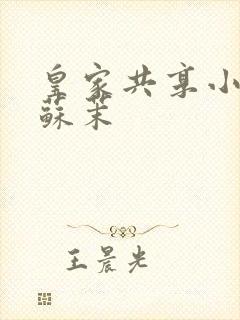 皇家共享小
蘇茉
王晨光